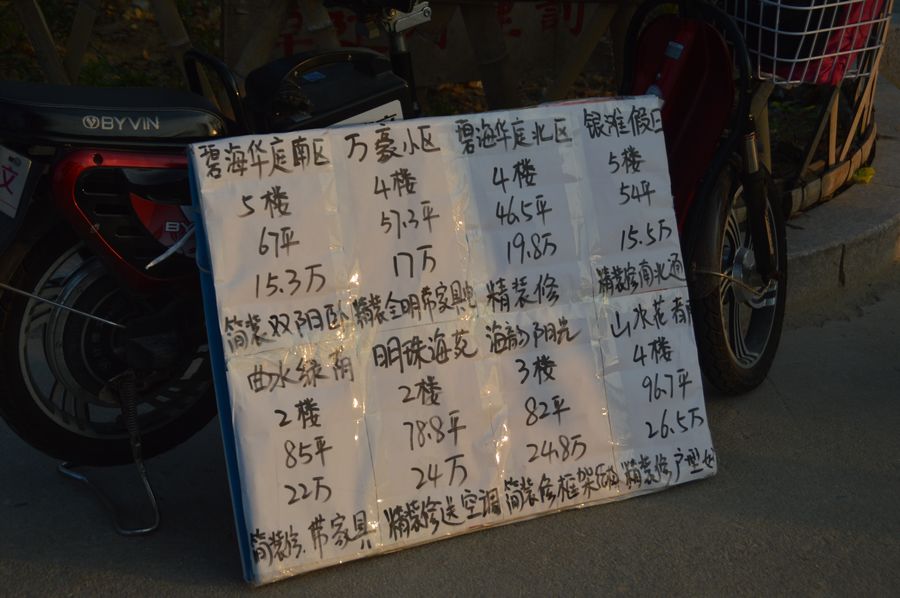 BYVIN
碧海华庭南区
5楼
67平
15.3万
简装双阳卧
万豪小区
4楼
57.3平
17万
精装全明带家具电
碧海华庭北区
4楼
46.5平
19.8万
精装修
银滩假区
5楼
54平
15.5万
精装修南北雨
曲水绿
2楼
85平
22万
简装修.带家具
明珠海苑
2楼
78.8平
24万
精装修送空调
海韵阳光
3楼
82平
24.8万
简装修框架
山水花
4楼
96.7平
26.5万
精装修户型